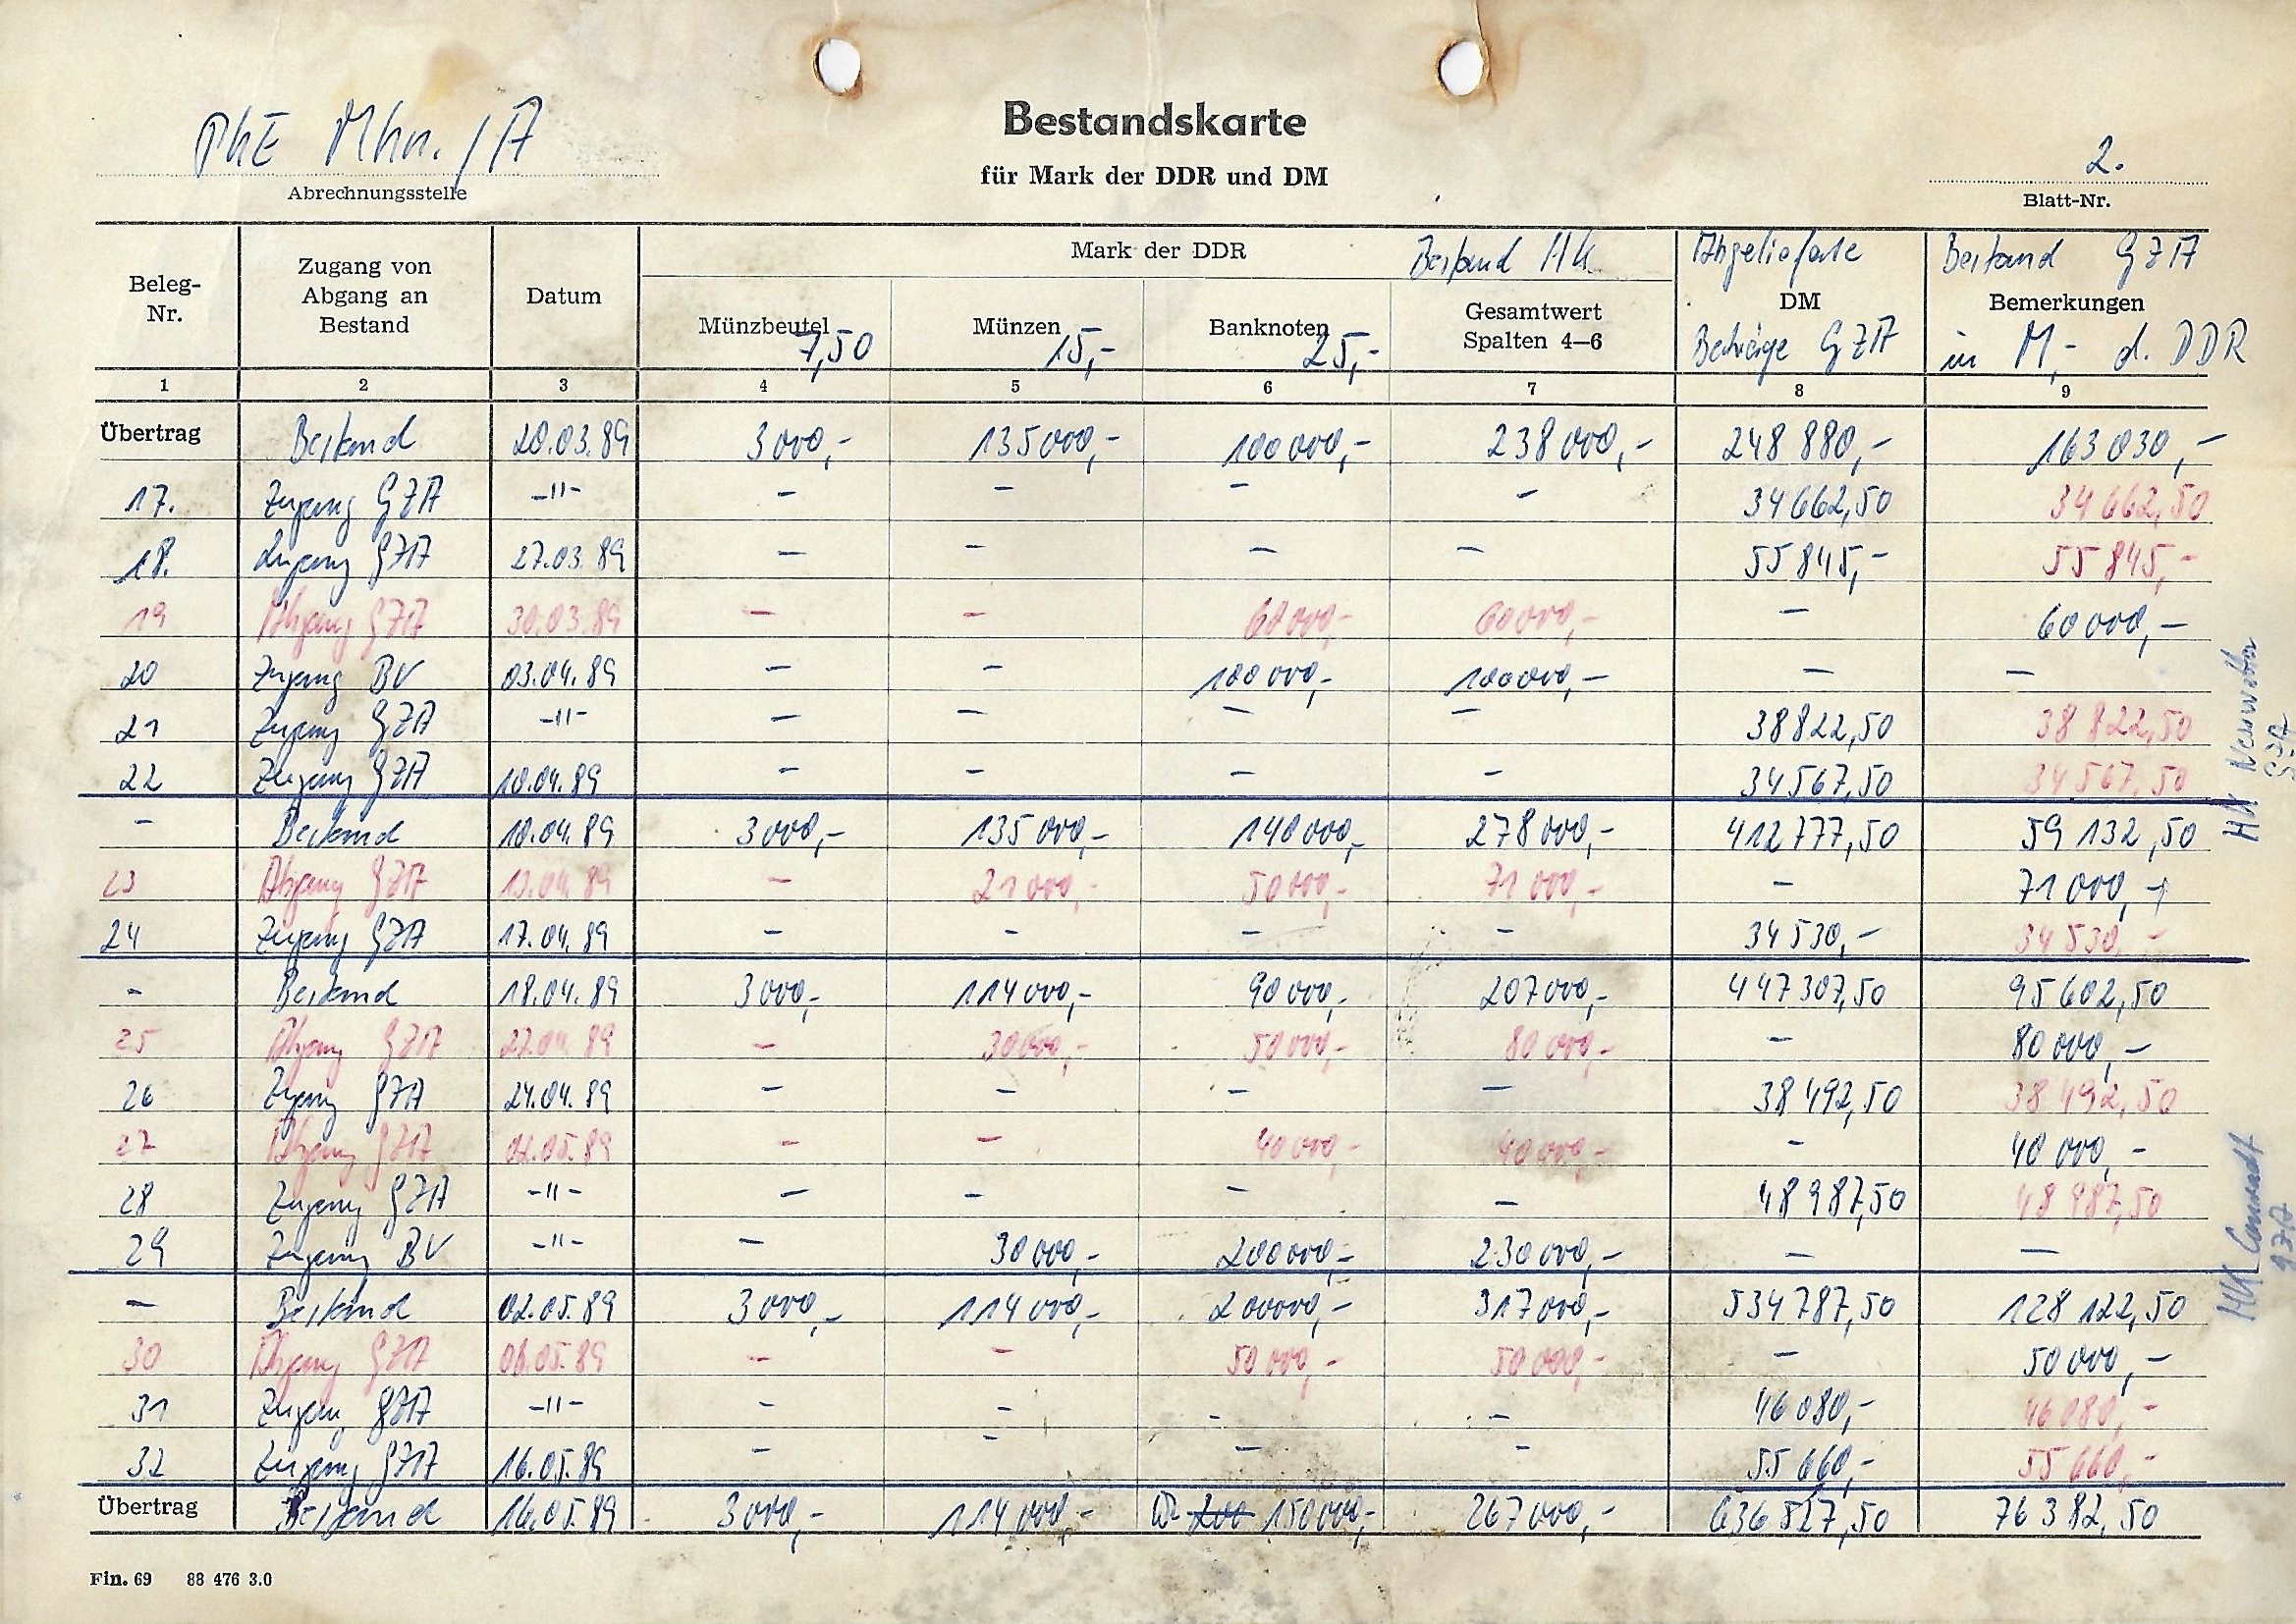 PkE Mhn. / A
Abrechnungsstelle
Bestandskarte
für Mark der DDR und DM
2.
Blatt-Nr.
Beleg-Nr. Zugang von Abgang an Bestand Datum Mark der DDR Bestand HK Abgelieferte DM Beträge GZA Bestand GZA Bemerkungen in M,- d. DDR
Münzbeutel 7,50 Münzen 15,- Banknoten 25,- Gesamtwert Spalten 4–6
1 2 3 4 5 6 7 8 9
Übertrag Bestand 20.03.89 3000,- 135000,- 100000,- 238000,- 248 880,- 163 030,-
17. Zugang GZA -"- - - - - 34662,50 34 662,50
18. Zugang GZA 27.03.89 - - - - 55845,- 55 845,-
19 Abgang GZA 30.03.89 - - 60000,- 60000,- - 60000,-
20 Zugang BV 03.04.89 - - 100000,- 100000,- - -
21 Zugang GZA -"- - - - - 38822,50 38 822,50
22 Zugang GZA 10.04.89 - - - - 34567,50 34567,50
- Bestand 10.04.89 3000,- 135000,- 140000,- 278000,- 412777,50 59 132,50
23 Abgang GZA 13.04.89 - 21000,- 50000,- 71000,- - 71000,-
24 Zugang GZA 17.04.89 - - - - 34530,- 34530,-
- Bestand 18.04.89 3000,- 114000,- 90000,- 207000,- 447307,50 95602,50
25 Abgang GZA 27.04.89 - 30000,- 50000,- 80000,- - 80000,-
26 Zugang GZA 24.04.89 - - - - 38492,50 38492,50
27 Abgang GZA 02.05.89 - - 40000,- 40000,- - 40000,-
28 Zugang GZA -"- - - - - 48987,50 48987,50
29 Zugang BV -"- - 30000,- 200000,- 230000,- - -
- Bestand 02.05.89 3000,- 114000,- 200000,- 317000,- 534787,50 128 122,50
30 Abgang GZA 08.05.89 - - 50000,- 50000,- - 50000,-
31 Zugang GZA -"- - - - - 46080,- 46080,-
32 Zugang GZA 16.05.89 - - - - 55660,- 55660,-
Übertrag Bestand 16.05.89 3000,- 114000,- 200 150000,- 267000,- 636527,50 76382,50
HK
GZA
HK
GZA
Fin. 69 88 476 3.0